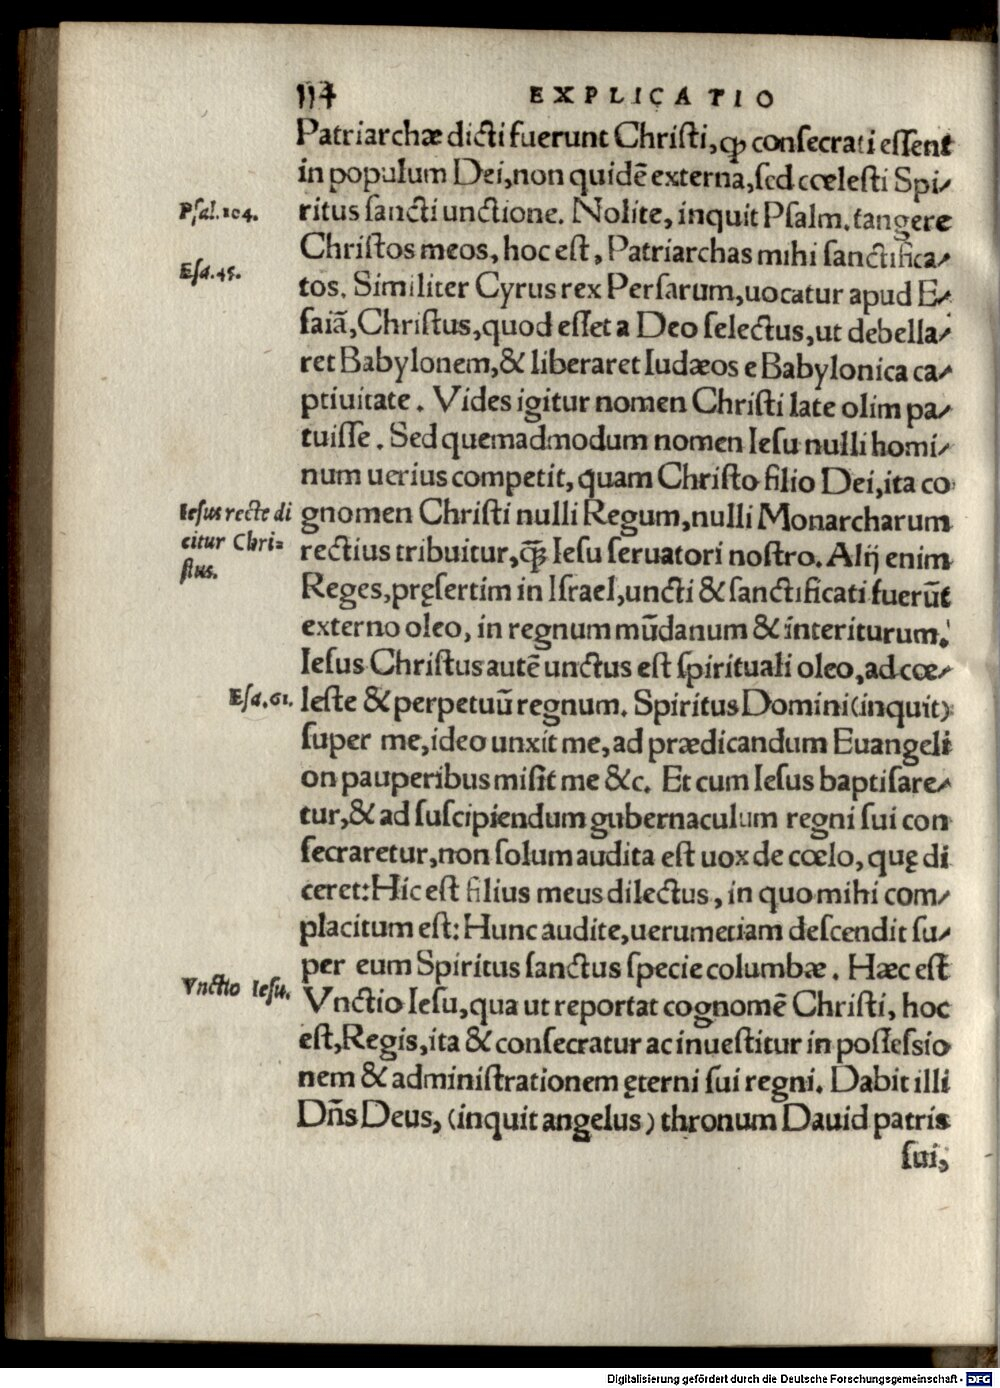 114 EXPLICATIO
Patriarchæ dicti fuerunt Christi, ꝙ consecrati essent
in populum Dei, non quidē externa, sed cœlesti Spi/
Psal.104.
ritus sancti unctione. Nolite, inquit Psalm. tangere
Christos meos, hoc est, Patriarchas mihi sanctifica/
Esa.45.
tos. Similiter Cyrus rex Persarum, uocatur apud E/
saiā, Christus, quod esset a Deo selectus, ut debella/
ret Babylonem, & liberaret Iudæos e Babylonica ca/
ptiuitate. Vides igitur nomen Christi late olim pa/
tuisse. Sed quemadmodum nomen Iesu nulli homi/
num uerius competit, quam Christo filio Dei, ita co
Iesus recte di
citur Chri=
stus.
gnomen Christi nulli Regum, nulli Monarcharum
rectius tribuitur, ꝙ̄ Iesu seruatori nostro. Alij enim
Reges, pręsertim in Israel, uncti & sanctificati fuerūt
externo oleo, in regnum mūdanum & interiturum.
Iesus Christus autē unctus est spirituali oleo, ad cœ/
Esa.61.
leste & perpetuū regnum. Spiritus Domini (inquit)
super me, ideo unxit me, ad prædicandum Euangeli
on pauperibus misit me &c. Et cum Iesus baptisare/
tur, & ad suscipiendum gubernaculum regni sui con
secraretur, non solum audita est uox de cœlo, quę di
ceret: Hic est filius meus dilectus, in quo mihi com/
placitum est: Hunc audite, uerumetiam descendit su/
per eum Spiritus sanctus specie columbæ. Hæc est
Vnctio Iesu.
Vnctio Iesu, qua ut reportat cognomē Christi, hoc
est, Regis, ita & consecratur ac inuestitur in possessio
nem & administrationem ęterni sui regni. Dabit illi
Dn̄s Deus, (inquit angelus) thronum Dauid patris
sui,
Digitalisierung gefördert durch die Deutsche Forschungsgemeinschaft - DFG